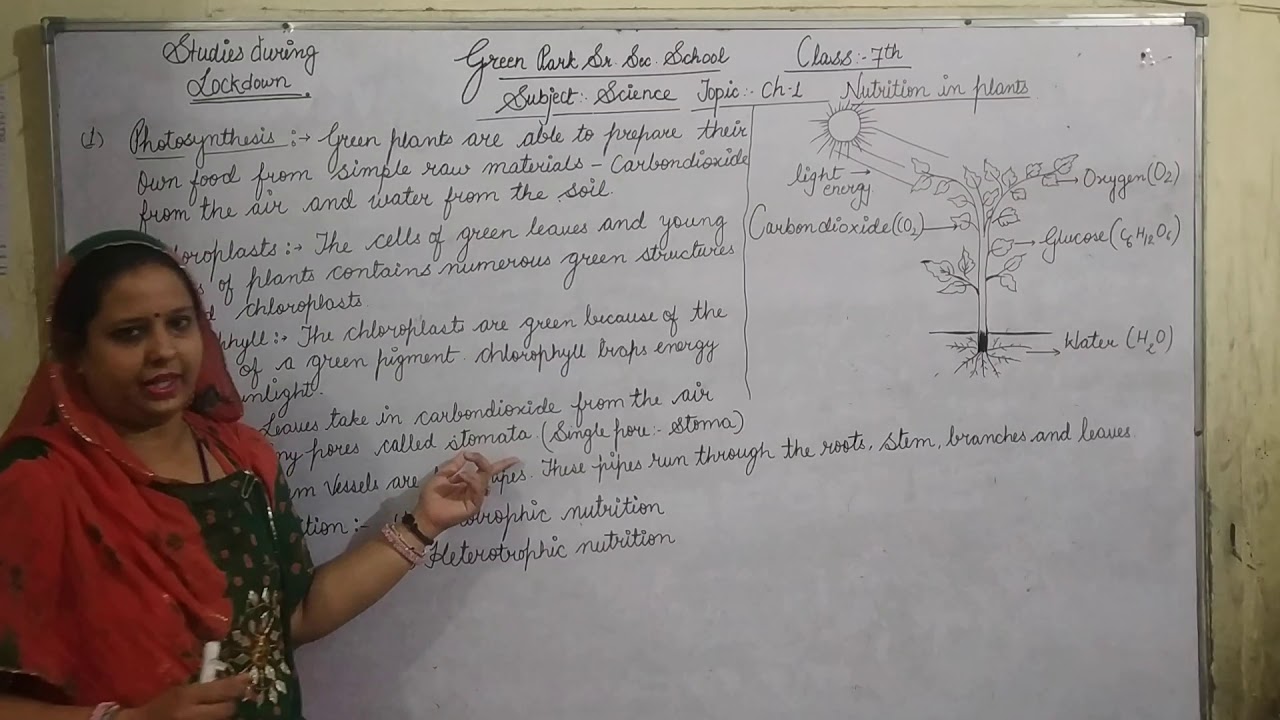 Studies during
Lockdown
Green Park Sr. Sec. School
Class:- 7th
Subject:- Science Topic:- Ch-1 Nutrition in plants
(1) Photosynthesis :→ Green plants are able to prepare their
own food from simple raw materials – Carbondioxide
from the air and water from the soil.
oroplasts :→ The cells of green leaves and young
of plants contains numerous green structures
chloroplasts.
hyll :→ The chloroplasts are green because of the
of a green pigment. chlorophyll traps energy
nlight.
Leaves take in carbondioxide from the air
ny pores called stomata. (Single pore:- Stoma)
m Vessels are These pipes run through the roots, stem, branches and leaves.
ition :- otrophic nutrition
Heterotrophic nutrition
light →
energy
Oxygen (O2)
Carbondioxide (CO2)
Glucose (C6H12O6)
Water (H2O)